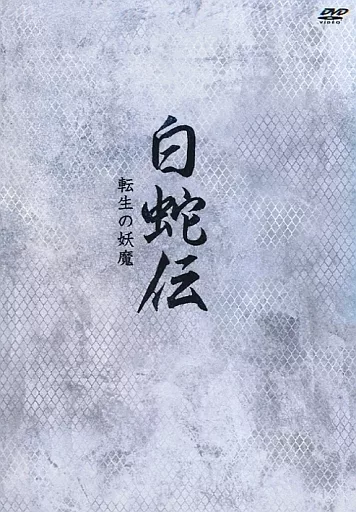 DVD
VIDEO
白蛇伝
転生の妖魔